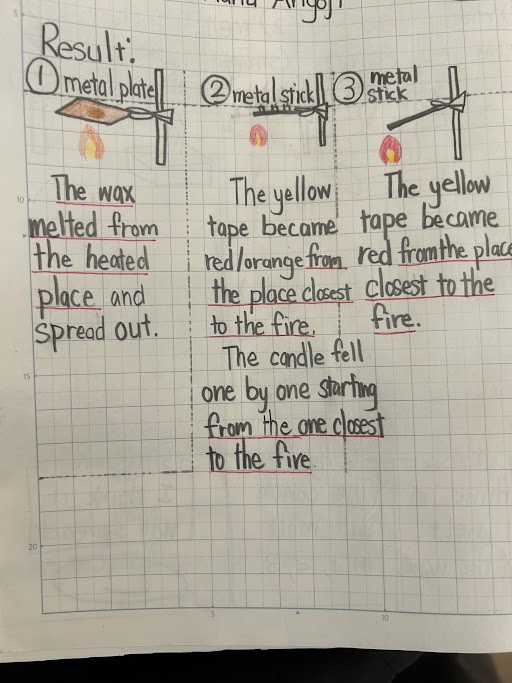 Result:
① metal plate
The wax
melted from
the heated
place and
spread out.
② metal stick
The yellow
tape became
red/orange from
the place closest
to the fire.
The candle fell
one by one starting
from the one closest
to the fire
③ metal
stick
The yellow
tape became
red from the place
closest to the
fire.
5
10
15
20
5
10